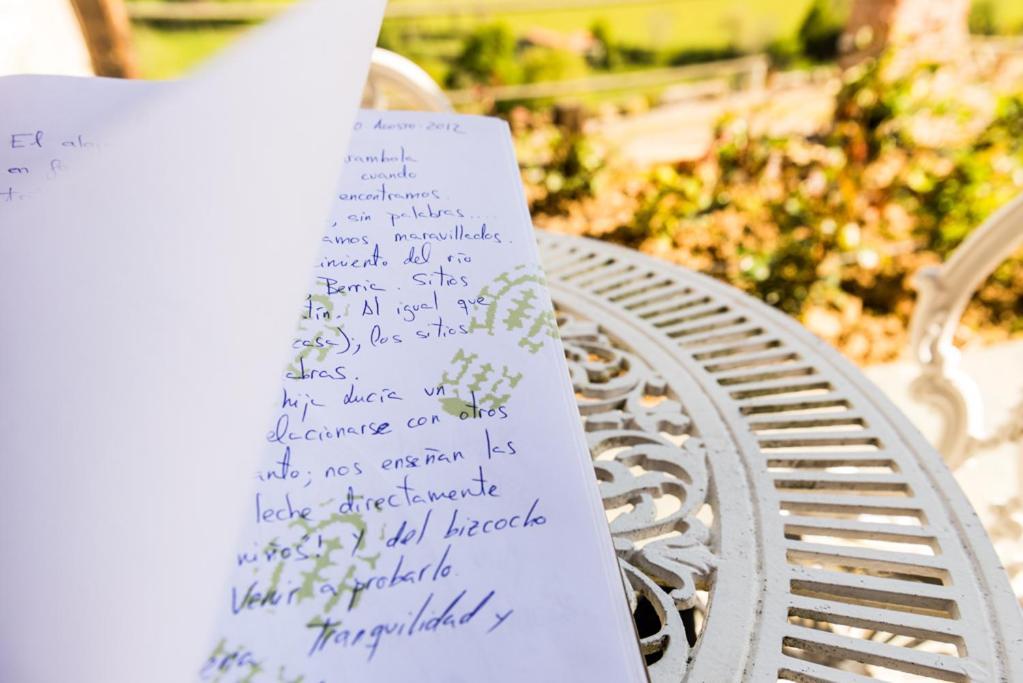 El
en
Agosto-2012
cuando
encontramos.
, sin palabras....
amos maravillados.
imiento del río
, Berria. Sitios
tín. Al igual que
casa), los sitios
abras.
hija ducía un
elacionarse con otros
anto; nos enseñan las
leche directamente
niños! y del bizcocho
Venir a probarlo.
tranquilidad y